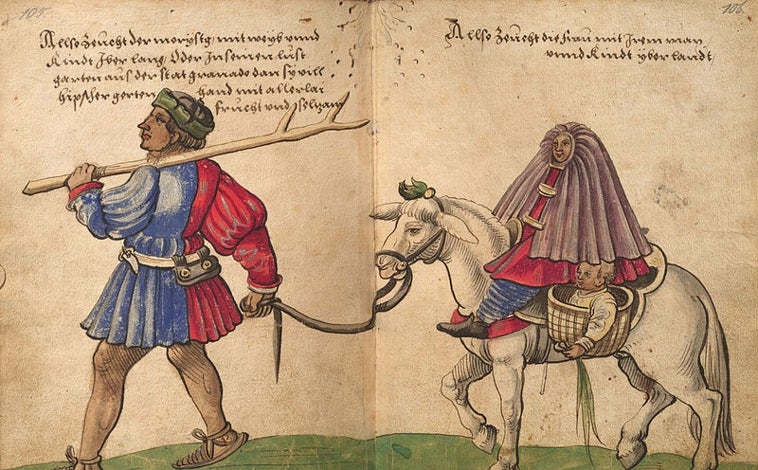 105.
Allso Zeücht der morystg mit weyb vnnd
Kindt Jber lang, Oder Jn seinen lust
garten aus der stat granado dan sy vill
hipscher gerten hand mit allerlaj
frucht vnd selzam
106.
Allso Zeücht die frau mit Jrem man
vnnd Kindt yber landt